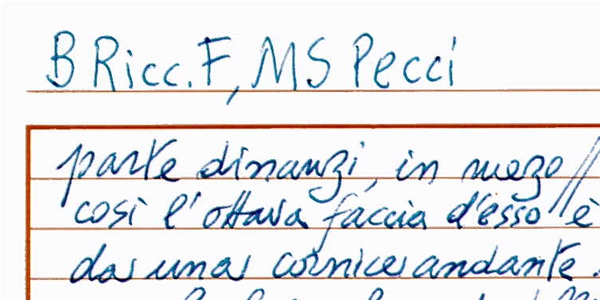 B Ricc. F, MS Pecci
parte dinanzi, in mezo //
così l'ottava faccia d'esso // è
da una cornice andante.